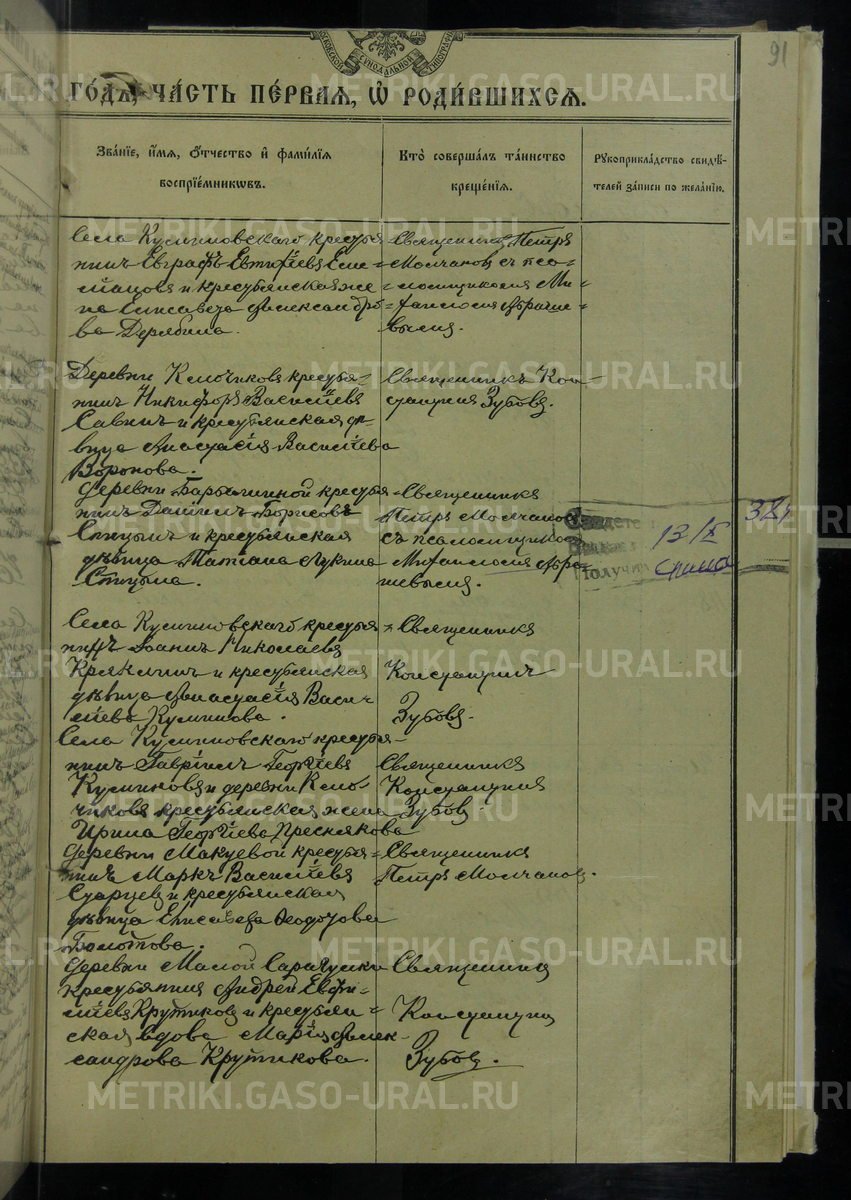 91
МОСКОВСКОЙ СѴНОДАЛЬНОЙ ТИПОГРАФІИ
ГО́ДА, ЧА́СТЬ ПЕ́РВАЯ, Ѡ҆ РОДИ́ВШИХСЯ.
Зва́нїе, и҆́мя, Ѻ҆́тчество и҆ фами́лїя
воспрїе́мникѡвъ.
Кто̀ соверша́лъ та́инство
креще́нїя.
Рꙋкоприкла́дство свидѣ́-
телей за́писи по жела́нїю.
Села Кулиновскаго кресть
нинъ Евграфъ Евтифіевъ
и крестьянская же=
на Елисавета Александро=
ва Дерябина.
Священникъ Петръ
Молчановъ съ пса=
ломщикомъ Ми=
Деревни Ключиковъ крестья=
нинъ Никифоръ Васильевъ
Савинъ и крестьянская дѣ=
вица Анастасія Васильева
Воронова.
Священникъ Кон=
стантинъ Зубовъ.
Деревни крестья
нинъ Даніилъ Борисовъ
Спицынъ и крестьянская
дѣвица Татіана Лукина
Спицына.
Священникъ
Петръ Молчановъ
съ псаломщикомъ
Получи
13/IX
381
Села Кулиновскаго крестья=
нинъ Іоаннъ Николаевъ
и крестьянская
дѣвица Анастасія Васи
ліева Кулинова.
Священникъ
Константинъ
Зубовъ.
Села Кулиновскаго крестья=
нинъ Гавріилъ Георгіевъ
Кулиновъ и деревни Клю=
чиковъ крестьянская жена
Ирина Георгіева Преснякова
Священникъ
Константинъ
Зубовъ.
Деревни Макуевой крестья=
нинъ Маркъ Васильевъ
Старцевъ и крестьянская
дѣвица Елисавета Ѳеодотова
Болотова.
Священникъ
Петръ Молчановъ.
Деревни Малой
крестьянинъ Андрей Евфи=
міевъ Крутиковъ и крестьян=
ская вдова Марія Алек=
сандрова Крутикова.
Священникъ
Константинъ
Зубовъ.
METRIKI.GASO-URAL.RU